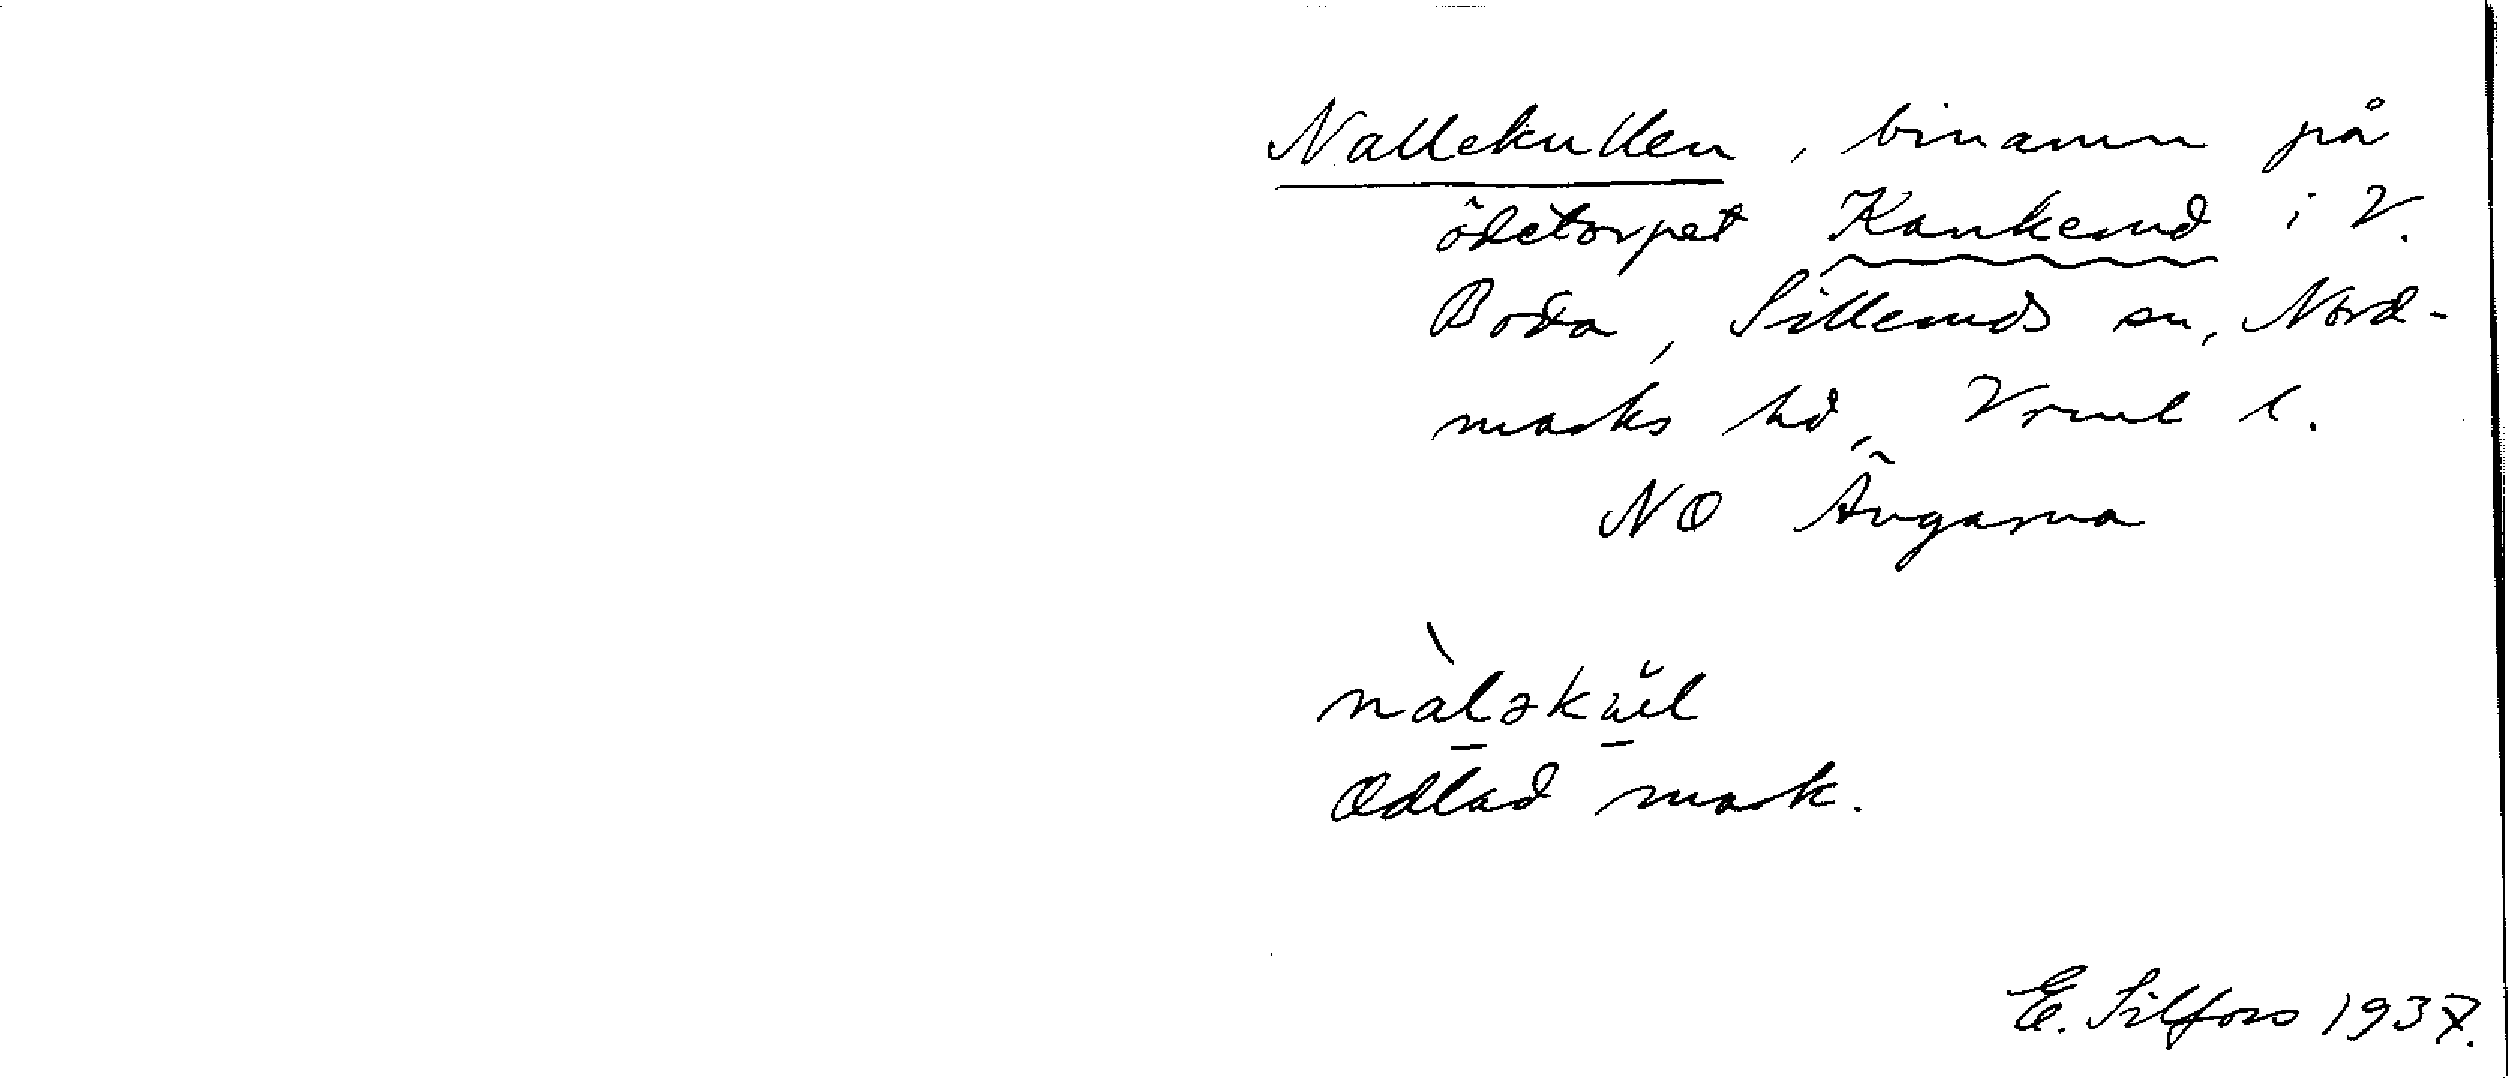 Nallekullen, binamn på
ödetorpet Kankerud i V.
Boda, Silleruds sn, Nord-
marks hd, Vrml l.
NO Ängarna
nàləkŭl
Odlad mark.
E. Silfors 1937.